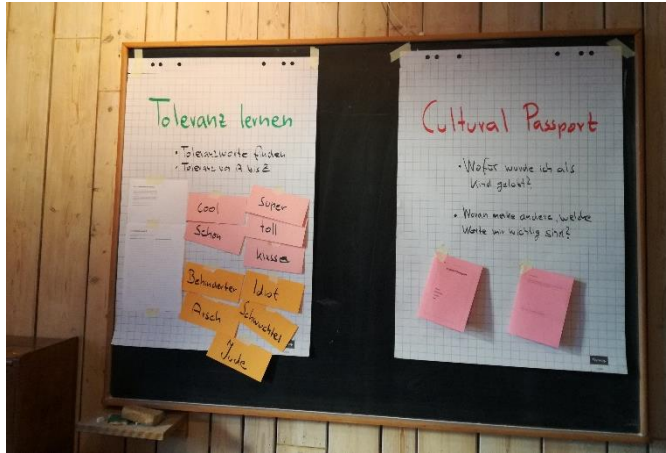 Toleranz lernen
• Toleranzworte finden
• Toleranz von A bis Z
cool
Super
Schön
toll
Behinderter
Idiot
Arsch
Schwuchtel
Jude
Cultural Passport
• Wofür wurde ich als
Kind gelobt?
• Woran merken andere, welche
Werte mir wichtig sind?